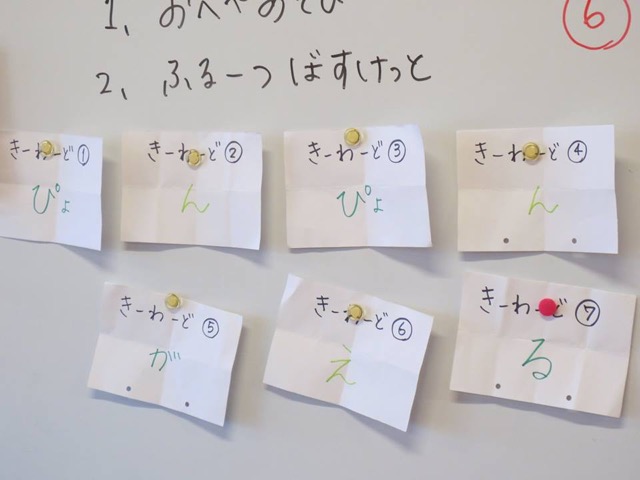 1、おへやあそび
⑥
2、ふるーつばすけっと
きーわーど①
ぴょ
きーわーど②
ん
きーわーど③
ぴょ
きーわーど④
ん
きーわーど⑤
が
きーわーど⑥
え
きーわーど⑦
る